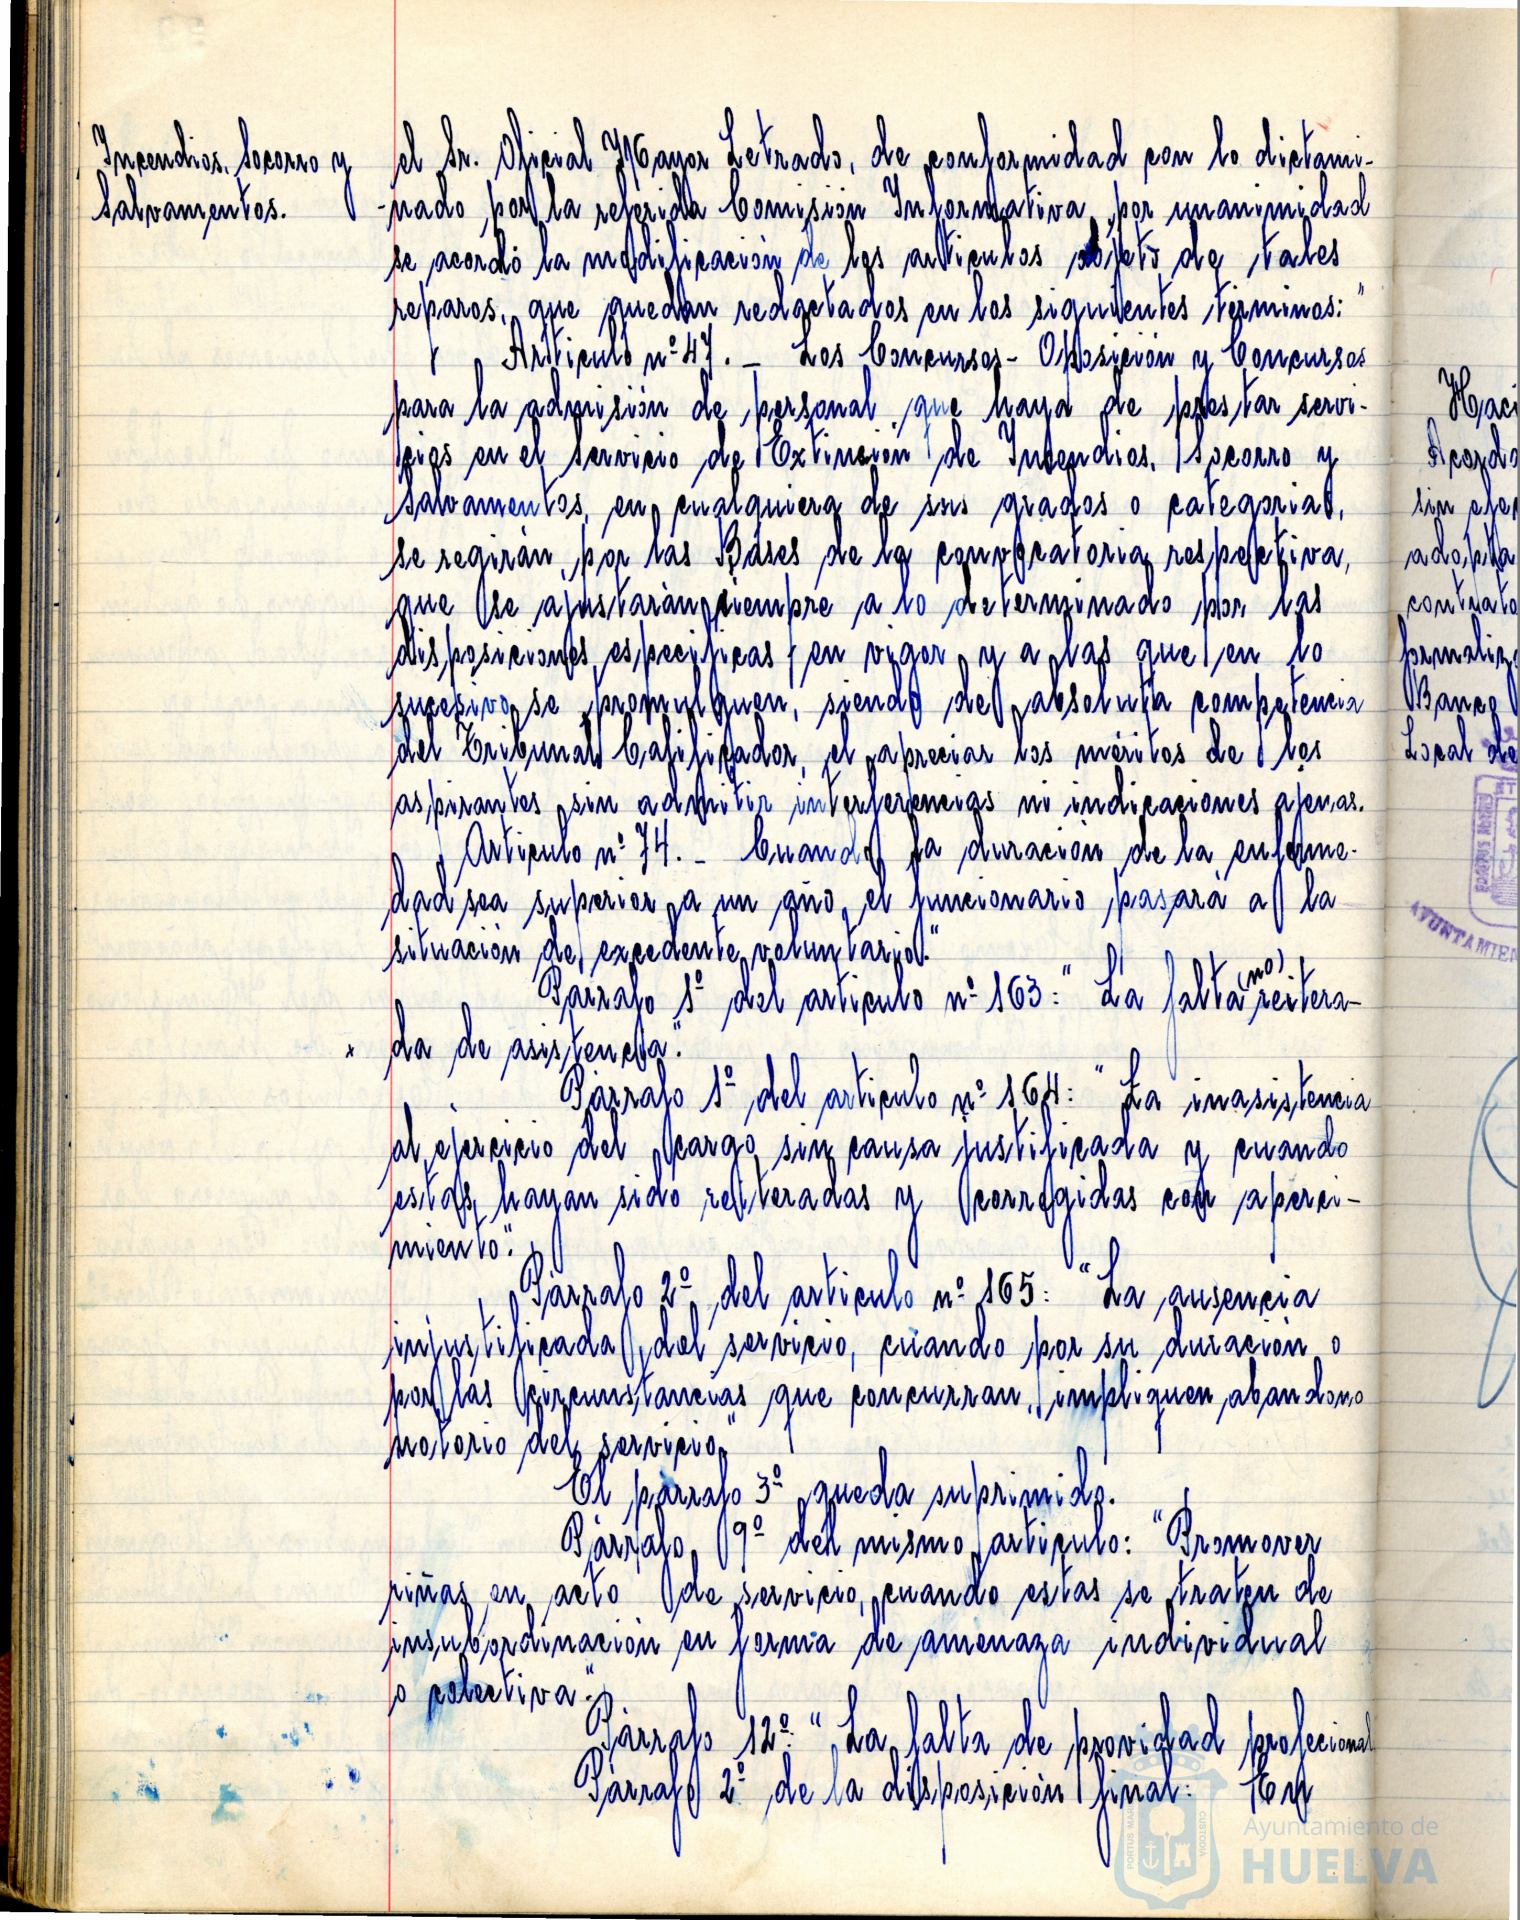 Incendios, Socorro y
Salvamentos.
el Sr. Oficial Mayor Letrado, de conformidad con lo dictami-
-nado por la referida Comisión Informativa, por unanimidad
se acordó la modificación de los artículos objeto de tales
reparos, que quedan redactados en los siguientes términos:"
Artículo nº 47. - Los Concursos-Oposición y Concursos
para la admisión de personal que haya de prestar servi-
cios en el Servicio de Extinción de Incendios, Socorro y
Salvamentos, en cualquiera de sus grados o categorias,
se regirán por las Bases de la convocatoria respectiva,
que se ajustarán siempre a lo determinado por las
disposiciones especificas en vigor y a las que en lo
sucesivo se promulguen, siendo de absoluta competencia
del Tribunal Calificador, el apreciar los méritos de los
aspirantes sin admitir interferencias ni indicaciones ajenas.
Artículo nº 74. - Cuando la duración de la enferme-
dad sea superior a un año, el funcionario pasará a la
situación de excedente voluntario."
Párrafo 1º del articulo nº 163: "La falta (no) reitera-
x da de asistencia."
Párrafo 1º del articulo nº 164: "La inasistencia
al ejercicio del cargo sin causa justificada y cuando
estas hayan sido reiteradas y corregidas con aperci-
miento".
Párrafo 2º del articulo nº 165: "La ausencia
injustificada del servicio, cuando por su duración o
por las circunstancias que concurran, impliquen abandono
notorio del servicio."
El párrafo 3º queda suprimido.
Párrafo 9º del mismo articulo: "Promover
riñas en acto de servicio, cuando estas se traten de
insubordinación en forma de amenaza individual
o colectiva".
Párrafo 12º: "La falta de providad profecional
Párrafo 2º de la disposición final: En
Acordo
contrato
Banco
Local de
AYUNTAMIEN
PORTUS MA
CUSTODI
Ayuntamiento de
HUELVA